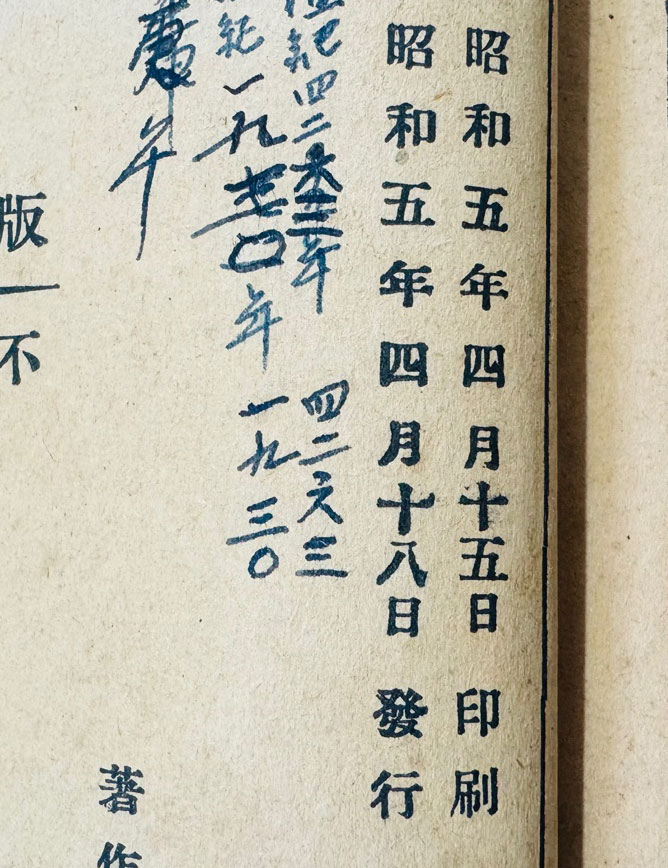 昭和五年四月十五日印刷
昭和五年四月十八日發行
紀四二六三年
四二六三
紀一九三〇年
一九三〇
庚午
著作
版
不